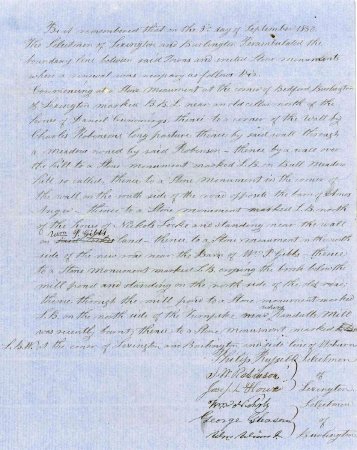 Be it remembered that on the 3d day of September 1850
The Selectmen of Lexington and Burlington Perambulated the
boundary line between said Towns and erected Stone monuments
where a renewal was necessary as follows Viz.
Commencing at a Stone Monument at the corner of Bedford Burlington
& Lexington marked B.B.L. near an north of the
house of Daniel Cummings, thence to a corner of the wall by
Charles Robinsons long pasture, thence by said wall through
a Meadow owned by said Robinson - thence by a wall over
the hill to a Stone monument marked L.B. on Bull Meadow
hill so called, thence to a Stone monument in the corner of
the wall on the south side of the road opposite the barn of
thence to a Stone monument marked L.B. north
of the house of Nichols Locke and standing near the wall
on P. Gibbs land - thence to a Stone monument on the north
side of the new road near the Barn of Wm P. Gibbs - thence
to a Stone monument marked L.B. the brook below the
mill pond and standing on the north side of the old road;
thence through the mill pond to a Stone monument marked
L.B. on the north side of the Turnpike near Randalls Mill
was recently burnt; thence to a Stone monument, marked
L.B.W. at the corner of Lexington and Burlington and side line of Woburn
Philip Russell Selectmen
Robinson of
Lexington
Selectmen
George Gleason of
Burlington